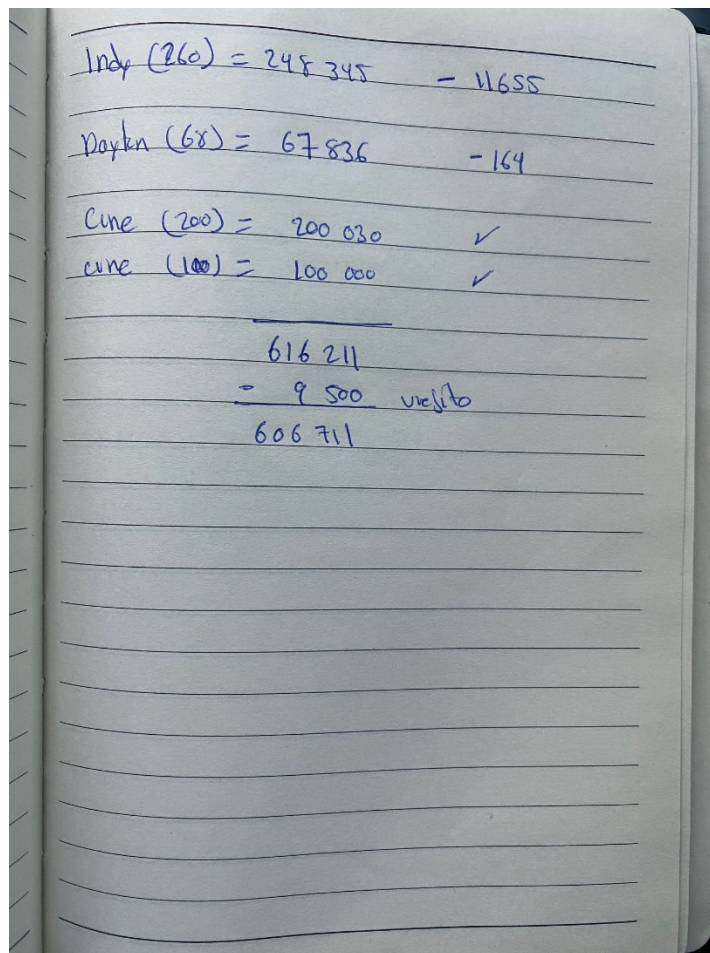 Indy (260) = 248 345 - 11655
Dayton (68) = 67 836 - 164
Cune (200) = 200 030 ✓
cune (100) = 100 000 ✓
616 211
- 9 500
606 711